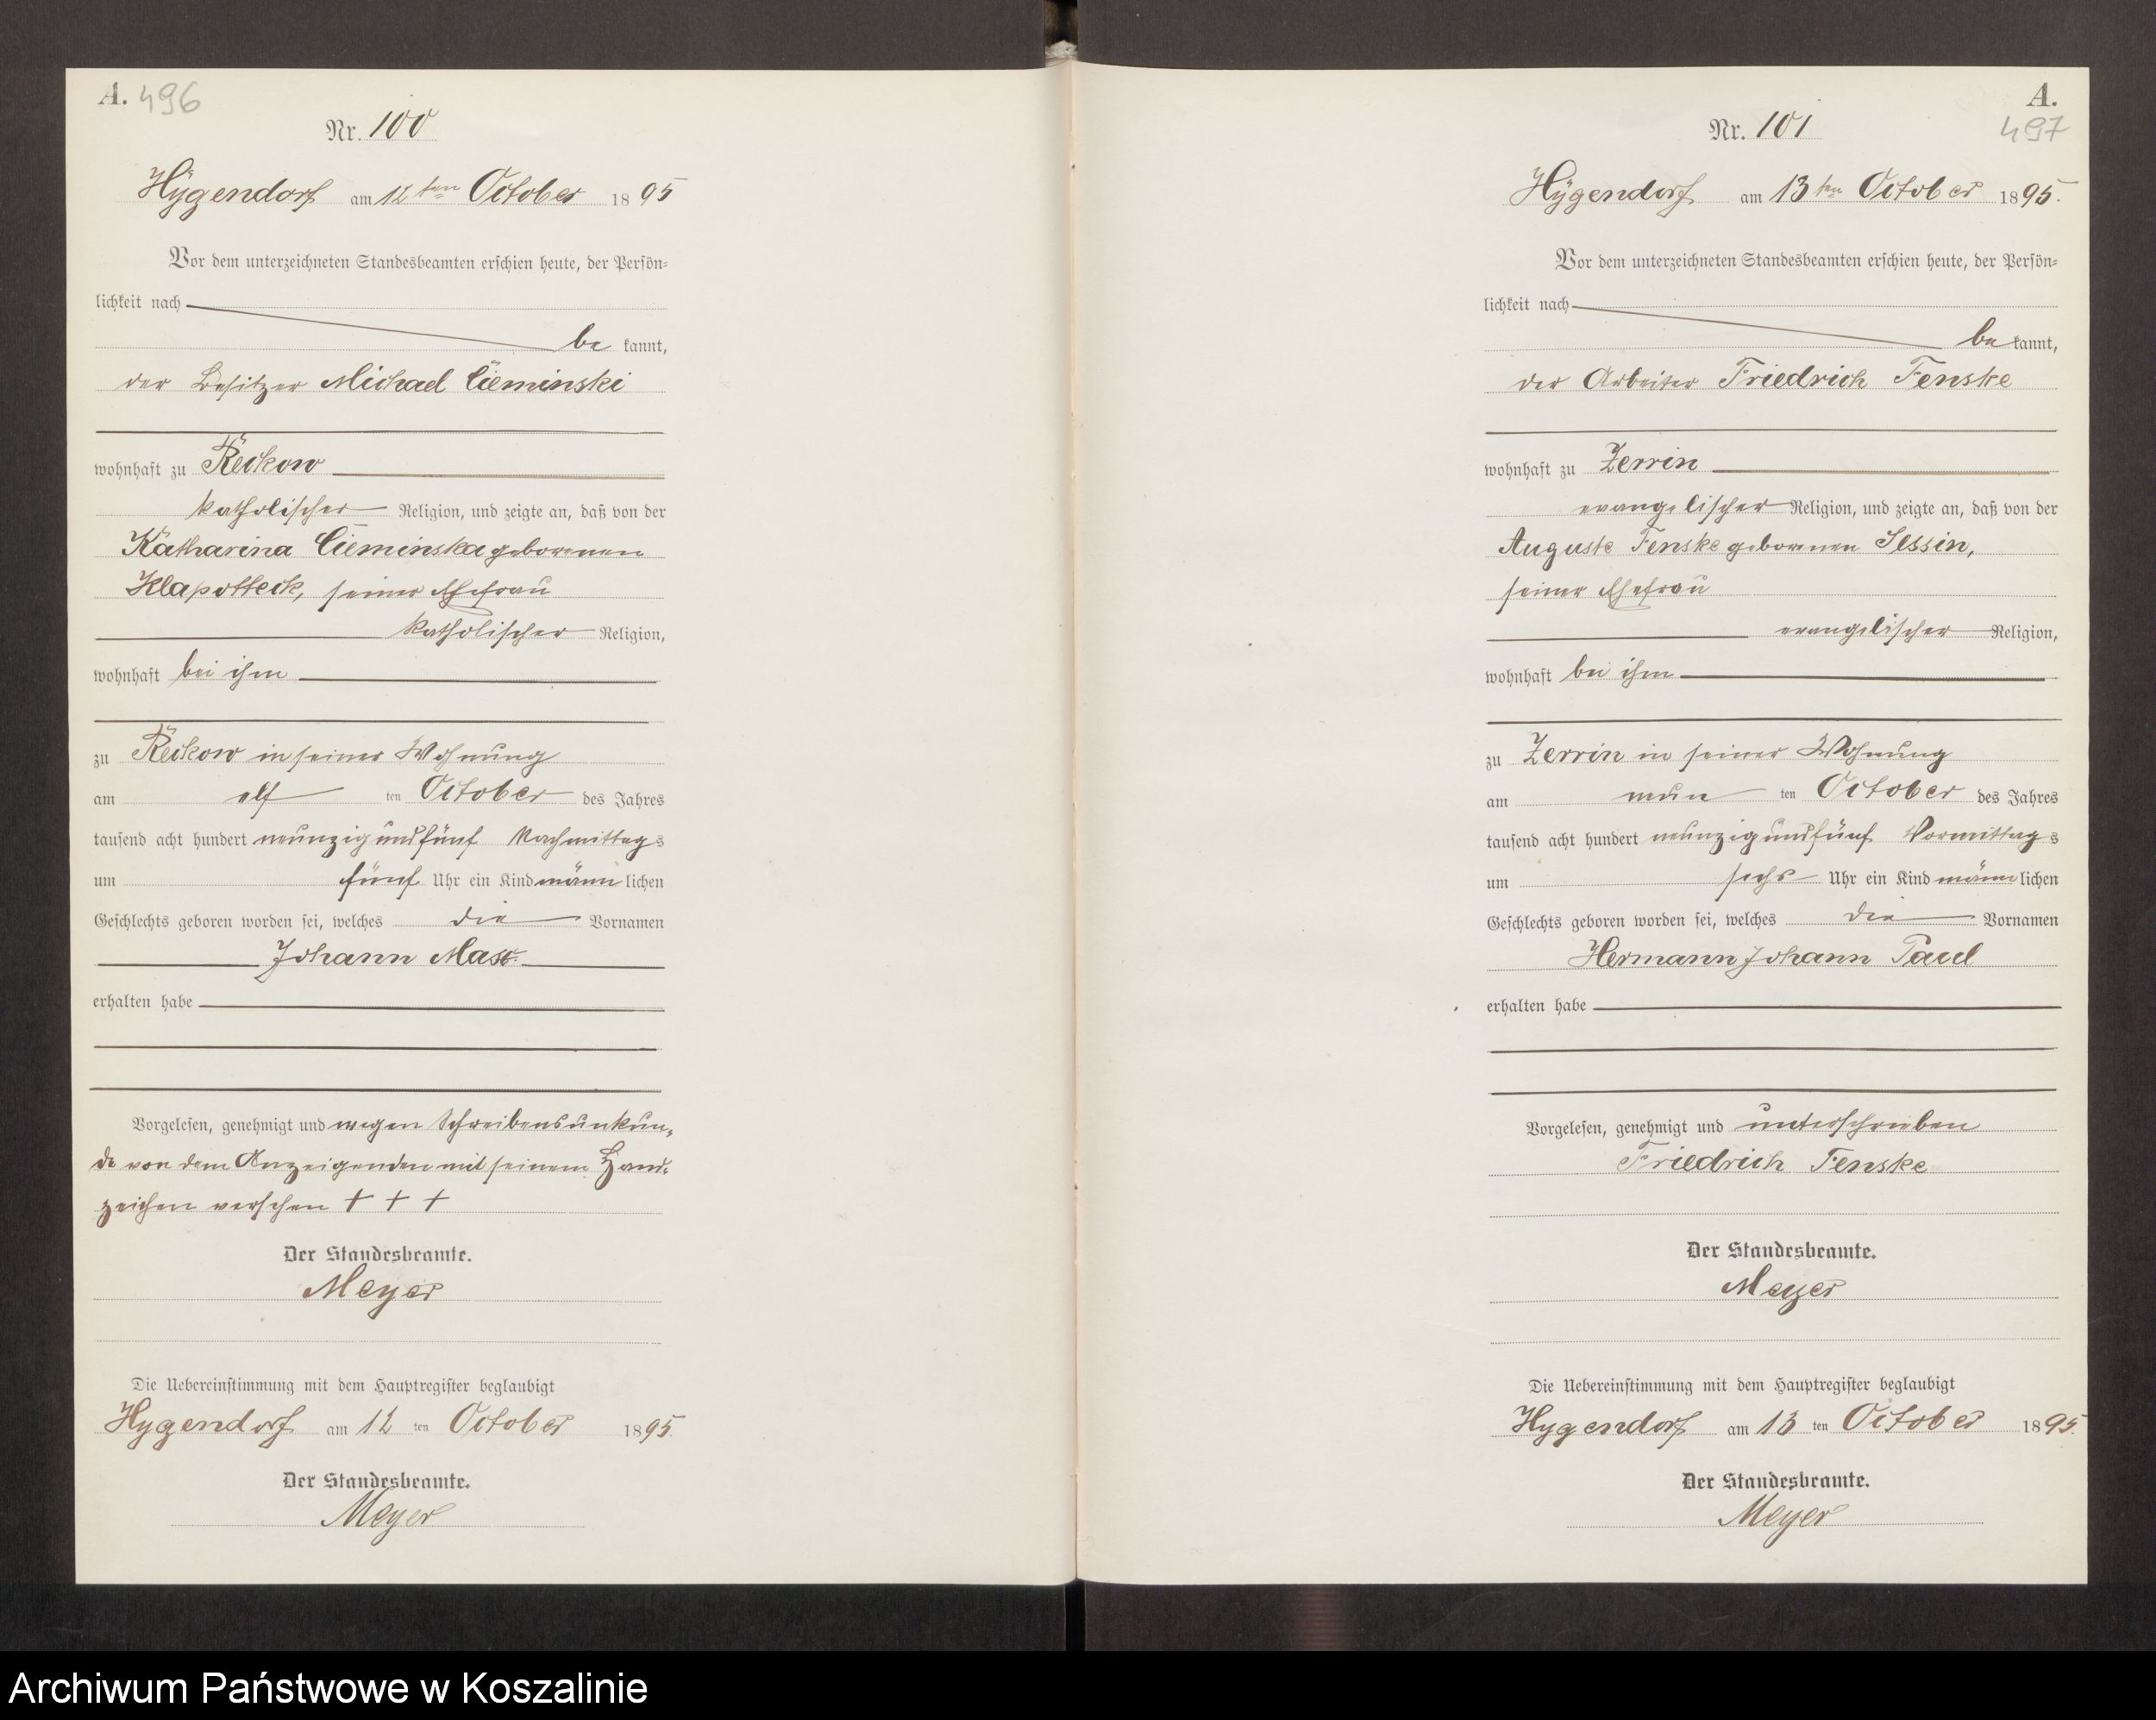 A. 496
Nr. 100
Hÿgendorf am 12ten October 1895
Vor dem unterzeichneten Standesbeamten erschien heute, der Persön-
lichkeit nach
be kannt,
der Besitzer Michael Cieminski
wohnhaft zu Reckow
katholischer Religion, und zeigte an, daß von der
Katharina Cieminska geborenen
Klapotteck, seiner Ehefrau
katholischer Religion,
wohnhaft bei ihm
zu Reckow in seiner Wohnung
am elf ten October des Jahres
tausend acht hundert neunzig und fünf Nachmittags
um fünf Uhr ein Kind männlichen
Geschlechts geboren worden sei, welches die Vornamen
Johann Max
erhalten habe
Vorgelesen, genehmigt und wegen Schreibensunkun-
de von dem Anzeigenden mit seinem Hand-
zeichen versehen + + +
Der Standesbeamte.
Meyer
Die Uebereinstimmung mit dem Hauptregister beglaubigt
Hygendorf am 12 ten October 1895.
Der Standesbeamte.
Meyer
A.
497
Nr. 101
Hÿgendorf am 13ten October 1895.
Vor dem unterzeichneten Standesbeamten erschien heute, der Persön-
lichkeit nach
be kannt,
der Arbeiter Friedrich Fenske
wohnhaft zu Zerrin
evangelischer Religion, und zeigte an, daß von der
Auguste Fenske geborenen Sessin,
seiner Ehefrau
evangelischer Religion,
wohnhaft bei ihm
zu Zerrin in seiner Wohnung
am neun ten October des Jahres
tausend acht hundert neunzig und fünf Vormittags
um sechs Uhr ein Kind männlichen
Geschlechts geboren worden sei, welches die Vornamen
Hermann Johann Paul
erhalten habe
Vorgelesen, genehmigt und unterschrieben
Friedrich Fenske
Der Standesbeamte.
Meyer
Die Uebereinstimmung mit dem Hauptregister beglaubigt
Hygendorf am 13 ten October 1895.
Der Standesbeamte.
Meyer
Archiwum Państwowe w Koszalinie